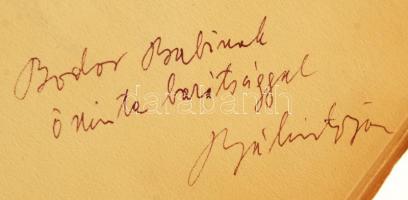 Bodor Babinak
őszinte barátsággal
Bálint Endre
darabanth